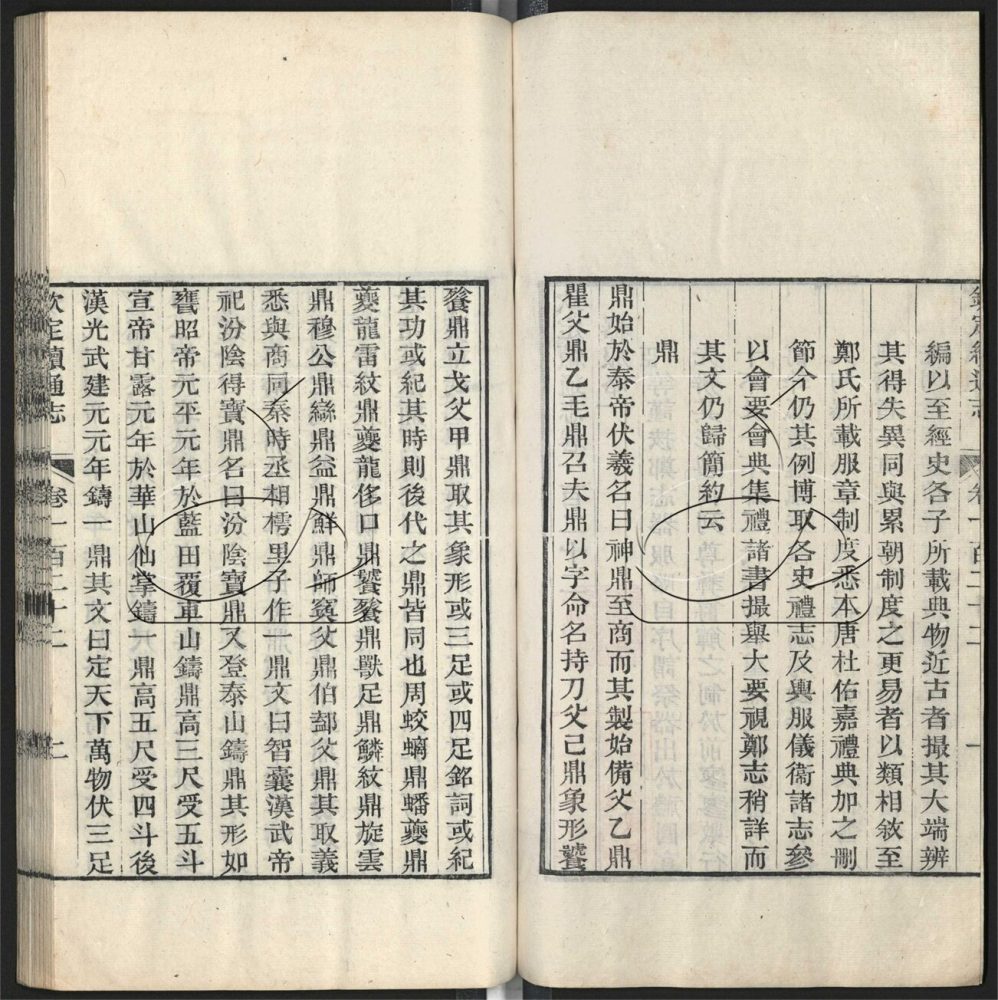 編以至經史各子所載典物近古者撮其大端辨
其得失異同與累朝制度之更易者以類相敘至
鄭氏所載服章制度悉本唐杜佑嘉禮典加之刪
節今仍其例博取各史禮志及輿服儀衞諸志參
以會要會典集禮諸書撮舉大要視鄭志稍詳而
其文仍歸簡約云
鼎
鼎始於泰帝伏羲名曰神鼎至商而其製始備父乙鼎
瞿父鼎乙毛鼎召夫鼎以字命名持刀父己鼎象形饕
餮鼎立戈父甲鼎取其象形或三足或四足銘詞或紀
其功或紀其時則後代之鼎皆同也周蛟螭鼎蟠夔鼎
夔龍雷紋鼎夔龍侈口鼎饕餮鼎獸足鼎鱗紋鼎旋雲
鼎穆公鼎䜌鼎益鼎鮮鼎師寏父鼎伯郄父鼎其取義
悉與商同秦時丞相樗里子作一鼎文曰智囊漢武帝
祀汾陰得寶鼎名曰汾陰寶鼎又登泰山鑄鼎其形如
甕昭帝元平元年於藍田覆車山鑄鼎高三尺受五斗
宣帝甘露元年於華山仙掌鑄一鼎高五尺受四斗後
漢光武建元元年鑄一鼎其文曰定天下萬物伏三足
欽定續通志 卷一百二十二 二